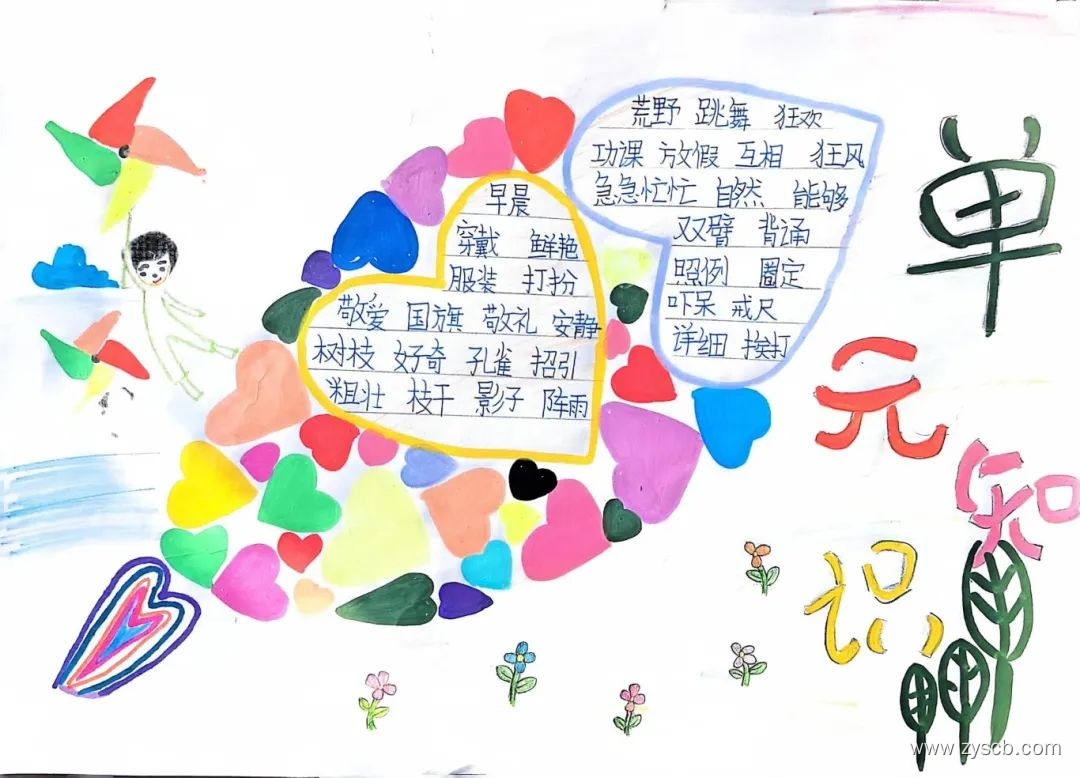 单元知识
早晨
穿戴 鲜艳
服装 打扮
敬爱 国旗 敬礼 安静
树枝 好奇 孔雀 招引
粗壮 枝干 影子 阵雨
荒野 跳舞 狂欢
功课 放假 互相 狂风
急急忙忙 自然 能够
双臂 背诵
照例 圈定
吓呆 戒尺
详细 挨打
www.zyscb.com